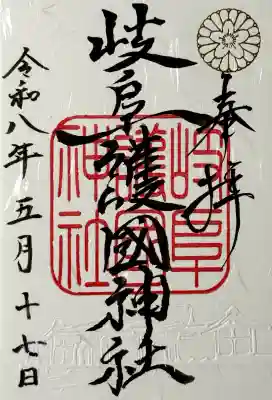 奉拝
岐阜護國神社
岐阜
護國
神社
令和八年五月十七日